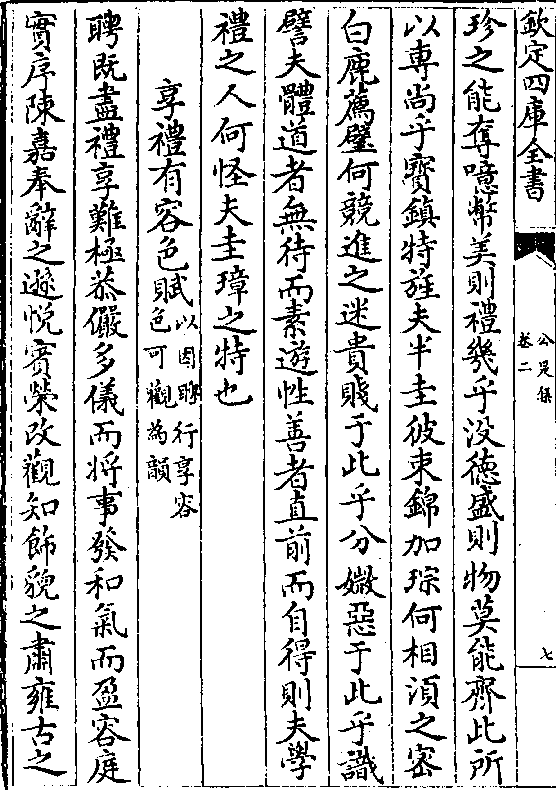 欽定四庫全書
公是集
卷二
七
珍之能奪噫幣美則禮幾乎没德盛則物莫能齊此所
以専尚乎寳鎮特旌夫半圭彼束錦加琮何相湏之密
白鹿薦璧何競進之迷貴賤于此乎分媺惡于此乎識
譬夫體道者無待而素遊性善者直前而自得則夫學
禮之人何怪夫圭璋之特也
享禮有容色賦以因聘行享容
色可觀為韻
聘既盡禮享難極恭儼多儀而將事發和氣而盈容庭
實序陳嘉奉辭之遜悦賓榮改觀知飾貌之肅雍古之